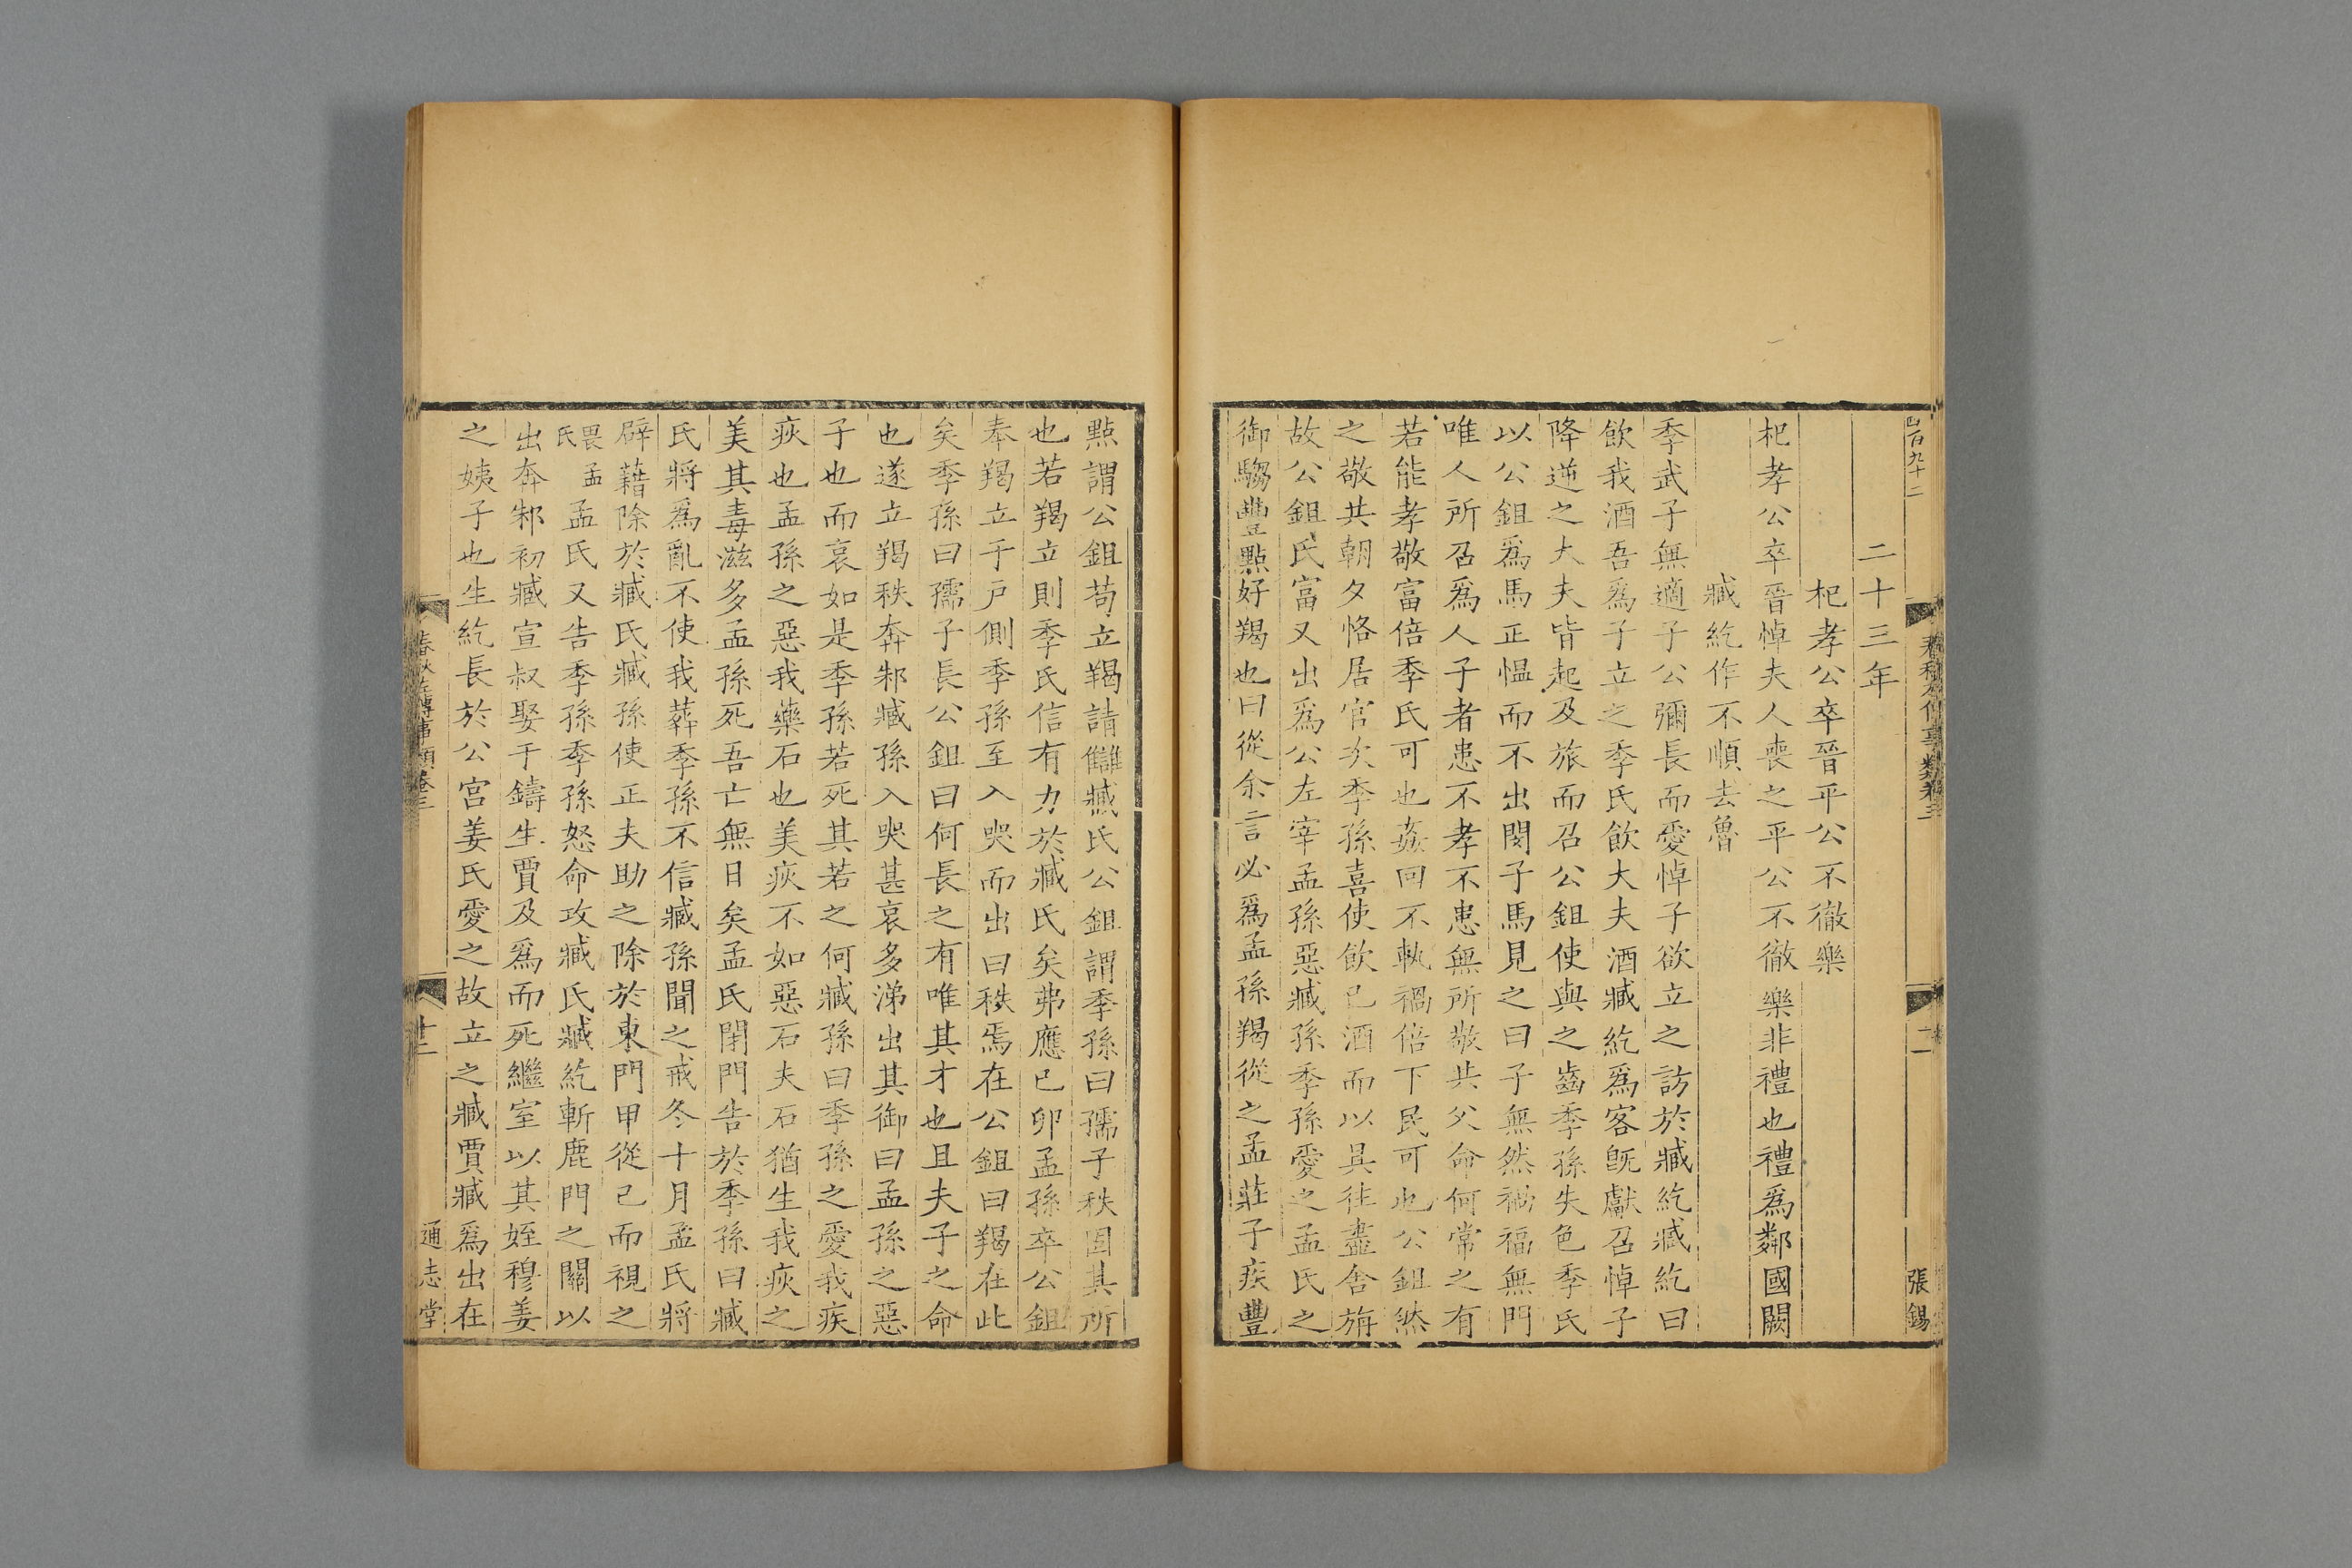 四百九十二
張錫
二十三年
杞孝公卒晉平公不徹樂
杞孝公卒晉悼夫人喪之平公不徹樂非禮也禮爲鄰國闕
臧紇作不順去魯
季武子無適子公彌長而愛悼子欲立之訪於臧紇臧紇曰
飲我酒吾爲子立之季氏飲大夫酒臧紇爲客旣獻召悼子
降逆之大夫皆起及旅而召公鉏使與之齒季孫失色季氏
以公鉏爲馬正慍而不出閔子馬見之曰子無然禍福無門
唯人所召爲人子者患不孝不患無所敬共父命何常之有
若能孝敬富倍季氏可也姦回不軌禍倍下民可也公鉏然
之敬共朝夕恪居官次季孫喜使飲己酒而以具往盡舍旃
故公鉏氏富又出爲公左宰孟孫惡臧孫季孫愛之孟氏之
御騶豐點好羯也曰從余言必爲孟孫羯從之孟莊子疾豐
點謂公鉏苟立羯請讎臧氏公鉏謂季孫曰孺子秩固其所
也若羯立則季氏信有力於臧氏矣弗應己卯孟孫卒公鉏
奉羯立于戶側季孫至入哭而出曰秩焉在公鉏曰羯在此
矣季孫曰孺子長公鉏曰何長之有唯其才也且夫子之命
也遂立羯秩奔邾臧孫入哭甚哀多涕出其御曰孟孫之惡
子也而哀如是季孫若死其若之何臧孫曰季孫之愛我疾
疢也孟孫之惡我藥石也美疢不如惡石夫石猶生我疢之
美其毒滋多孟孫死吾亡無日矣孟氏閉門告於季孫曰臧
氏將爲亂不使我葬季孫不信臧孫聞之戒冬十月孟氏將
辟藉除於臧氏臧孫使正夫助之除於東門甲從己而視之
畏孟氏孟氏又告季孫季孫怒命攻臧氏臧紇斬鹿門之關以
出奔邾初臧宣叔娶于鑄生賈及爲而死繼室以其姪穆姜
之姨子也生紇長於公宮姜氏愛之故立之臧賈臧爲出在
春秋左傳事類卷三
十二
通志堂